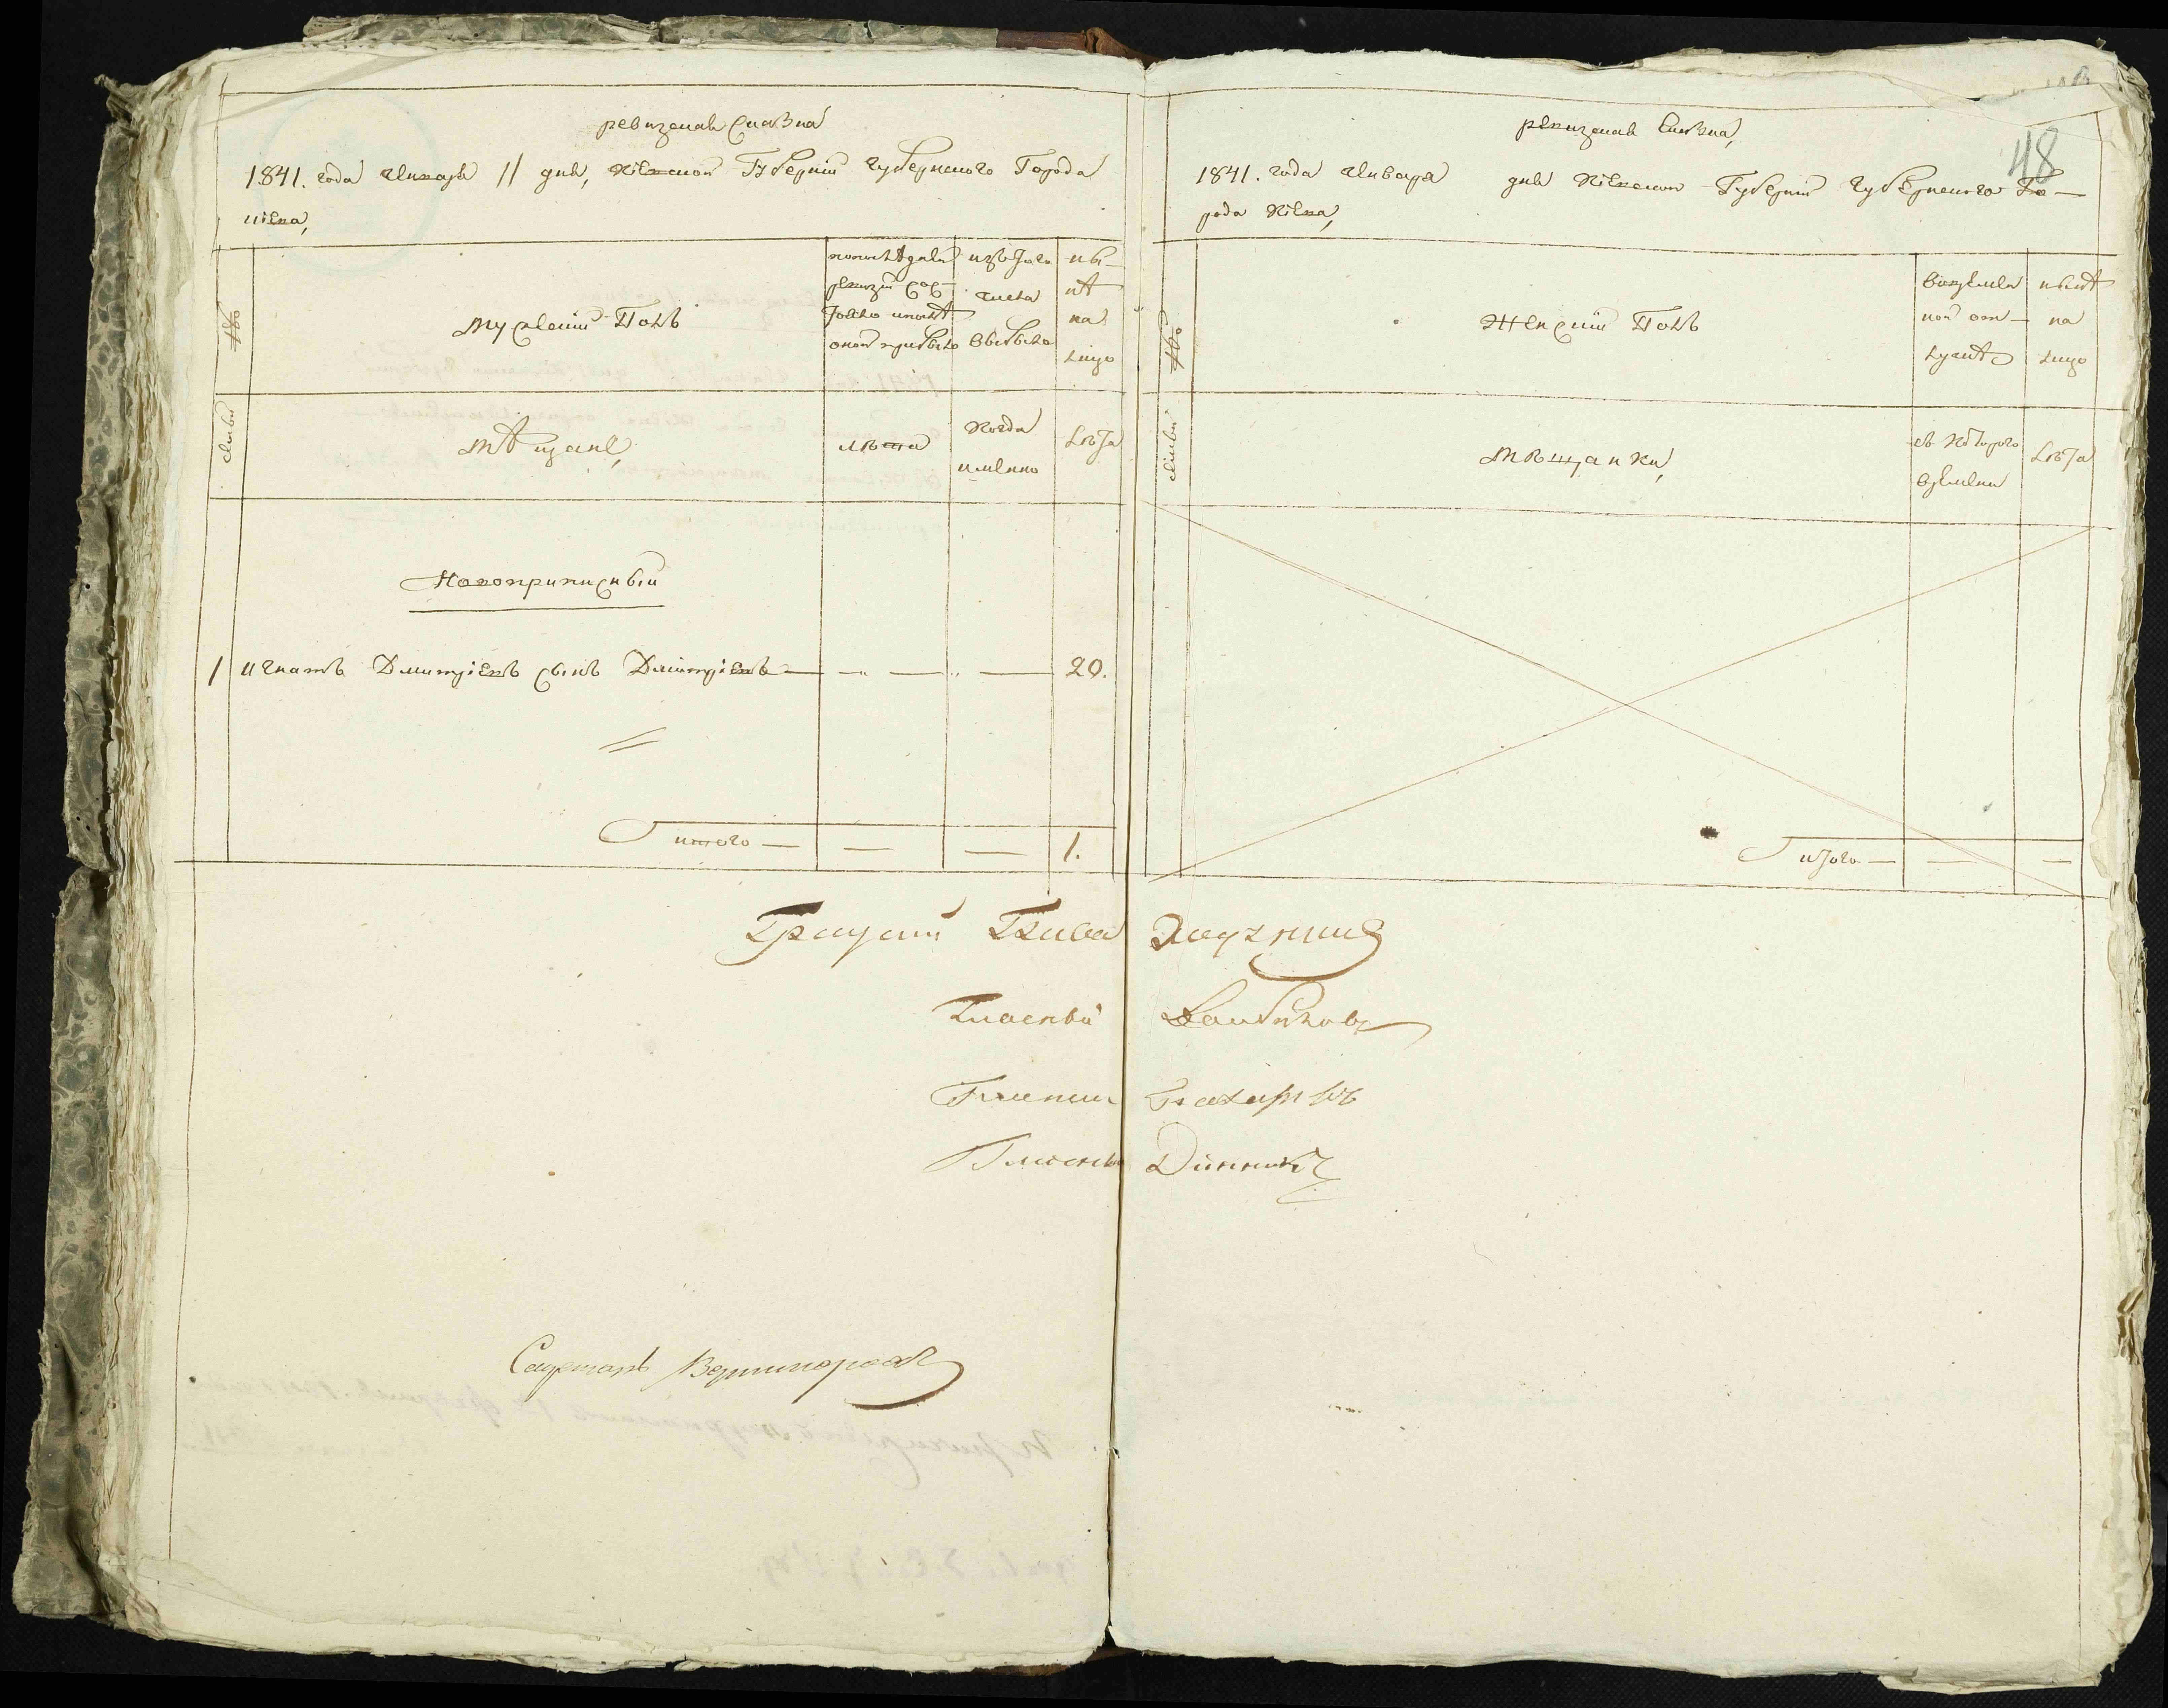 ревизская сказка
1841. года января 11 дня, Киевской Губернии губернского Города
Киева,
№
мужеский Полъ
по последней ревизии состояло и после оной прибыло
изъ того числа выбыло
ныне на лицо
семьи
мѣщане,
лѣта
когда именно
лѣта
Новоприписный
1 Игнатъ Дмитріевъ сынъ Дмитріевъ — — — 20.
итого — — — 1.
48
ревизская сказка,
1841. года января дня Киевской Губернии губернского Го—
рода Киева,
№
Женскій Полъ
во временной отлучке
ныне на лицо
семьи
мѣщанки,
съ которого времени
лѣта
итого — — —
Градский Глава
Гласный
Гласный
Гласный Динникъ
Секретарь